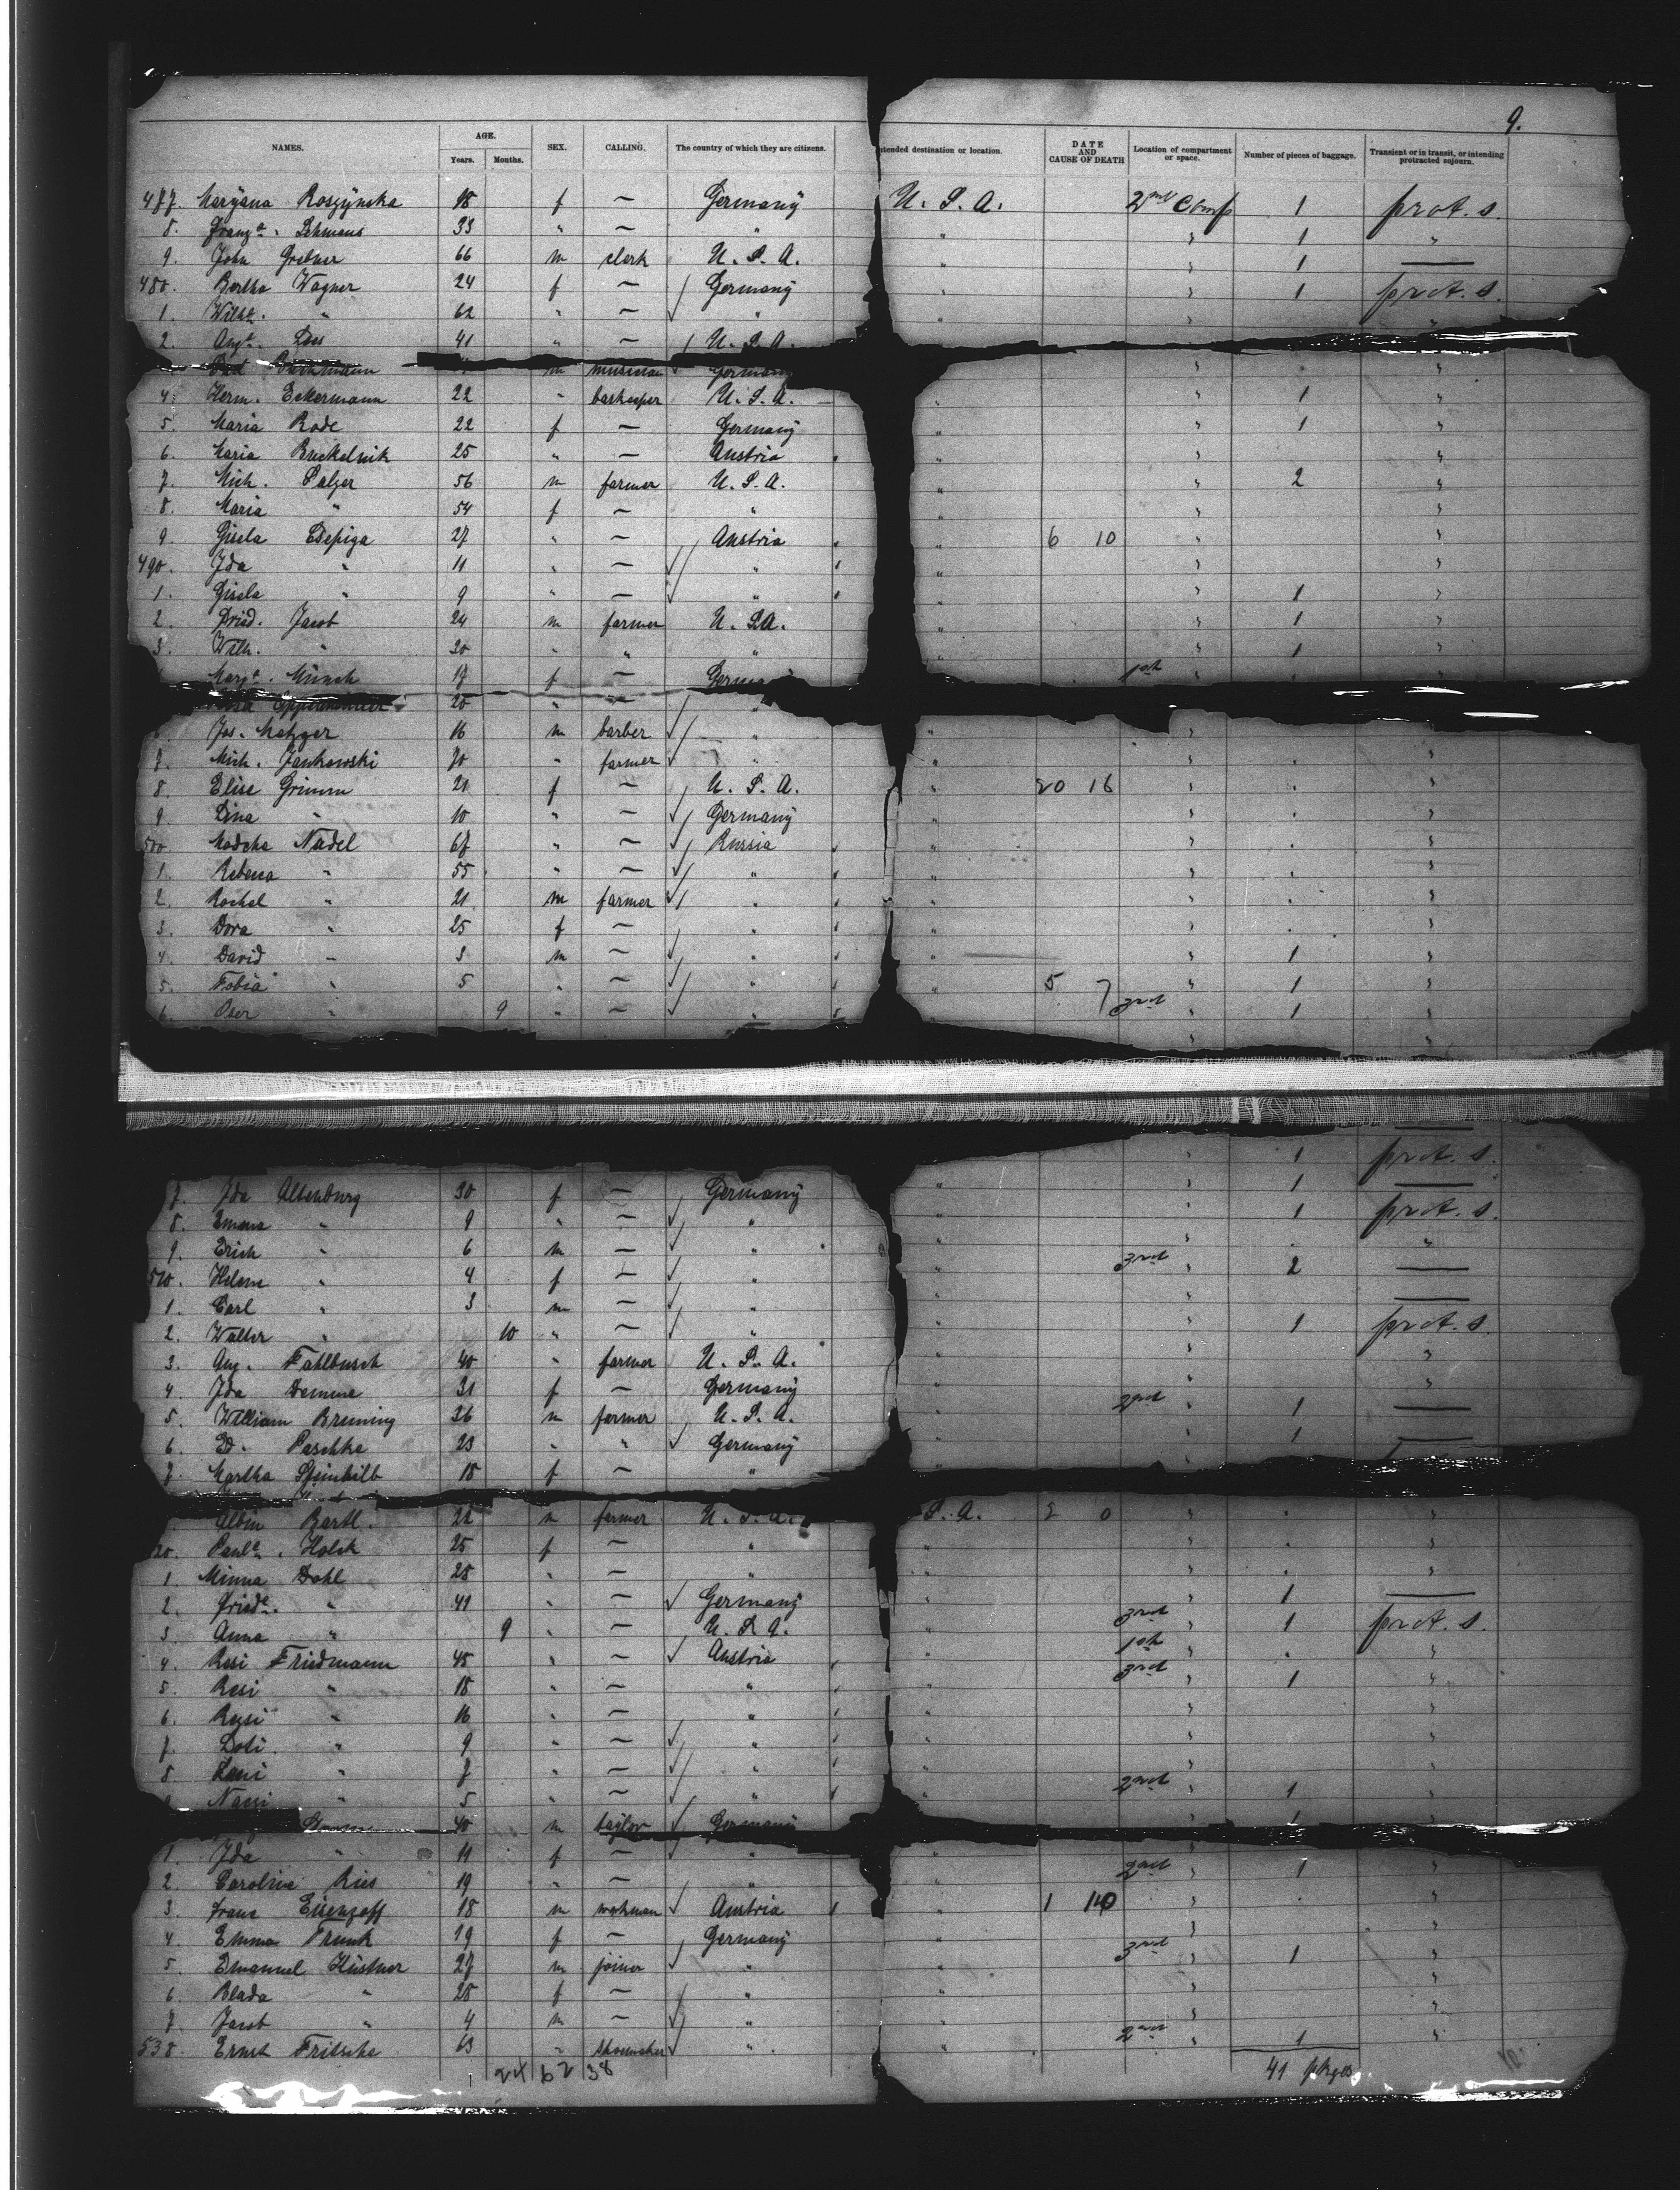 9.
NAMES. AGE. Years. Months. SEX. CALLING. The country of which they are citizens. ntended destination or location. DATE AND CAUSE OF DEATH Location of compartment or space. Number of pieces of baggage. Transient or in transit, or intending protracted sojourn.
477. Maryana Roszynska 18 f — Germany U. S. A. 2nd Comp 1 prot. s.
8. Franza. Lehmans 33 " — " " " 1 "
9. John Grebner 66 m clerk U. S. A. " " 1 —
480. Bertha Wagner 24 f — Germany " " 1 prot. s.
1. Wilha. " 62 " — " " " "
2. Auga. 41 " — U. S. A.
m musician Germany " "
4. Herm. Eckermann 22 " barkeeper U. S. A. " " 1 "
5. Maria Rode 22 f — Germany " " 1 "
6. Maria Bruckelnik 25 " — Austria " " "
7. Mich. Palzer 56 m farmer U. S. A. " " 2 "
8. Maria " 54 f — " " " "
9. Gisela 27 " — Austria " 6 10 " "
490. Ida " 11 " — " " " "
1. Gisela " 9 " — " " " 1 "
2. Fried. Jacob 24 m farmer U. S. A. " " 1 "
3. Wilh. " 20 " " " " " 1 "
Marga. Münch 17 f — Germa
20 " — "
6. Jos. Metzger 16 m barber " " "
7. Mich. Jankowski 70 " farmer " " " "
8. Elise Grimm 21 f — U. S. A. " 20 16 " "
9. Lina " 10 " — Germany " " "
500. Madcha Nadel 67 " — Russia " " "
1. Rebeca " 55 " — " " " "
2. Rachel " 21 m farmer " " " "
3. Dora " 25 f — " " " "
4. David " 3 m — " " " 1 "
5. Tobia " 5 " — " " 5 7 " 1 "
6. Oser " 9 " — " " 3rd " 1 "
" 1 prot. s.
7. Ida Altenburg 30 f — Germany " " 1 —
8. Emma " 9 " — " " " 1 prot. s.
9. Erich " 6 m — " " " "
510. Helene " 4 f — " " 3rd " 2 —
1. Carl " 3 m — " " " —
2. Walter " 10 " — " " " 1 prot. s.
3. Aug. Fahlbusch 40 " farmer U. S. A. " " "
4. Ida Damma 31 f — Germany " " "
5. William Breuning 36 m farmer U. S. A. " 2nd " 1 —
6. Ed. Paschke 23 " " Germany " " 1 —
7. Martha Steinhilb 18 f — " "
Albin Bartl. 22 m farmer U. S. A. S. A. 2 0 " "
20. Paula. Holck 25 f — " " " "
1. Minna Dahl 28 " — " " " "
2. Frieda. " 41 " — Germany " " 1 —
3. Anna " 9 " — U. S. A. " 3rd " 1 prot. s.
4. Resi Friedmann 45 " — Austria " 10th " "
5. Resi " 18 " — " " 3rd " 1 "
6. " 16 " — " " " "
7. Loti " 9 " — " " " "
8. " 7 " — " " " "
9. " 5 " — " " 2nd " 1 "
40 m taylor Germany " 1 "
1. Ida " 11 f — " "
2. Carolina Ries 19 " — " " 2nd " 1 "
3. Franz Eisenzopf 18 m wohman Austria " 1 " "
4. Emma Trunk 19 f — Germany " " "
5. Emanuel Hüstner 27 m joiner " " 3rd " 1 "
6. Blada " 28 f — " " " "
7. Jacob " 4 m — " " " "
538. Ernst Fritsche 63 " shoemaker " 2nd " 1 "
24 62 38 41 pkges